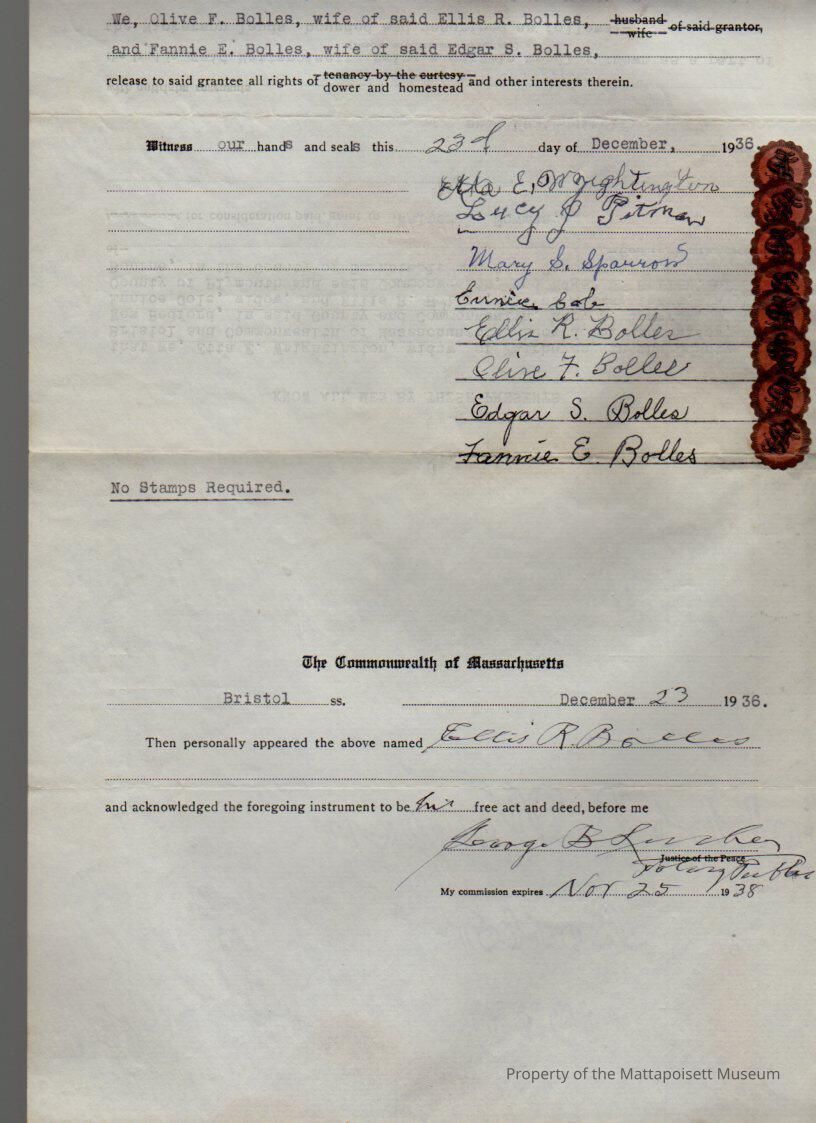 We, Olive F. Bolles, wife of said Ellis R. Bolles, husband wife of said grantor,
and Fannie E. Bolles, wife of said Edgar S. Bolles,
release to said grantee all rights of tenancy by the curtesy dower and homestead and other interests therein.
Witness our hands and seals this 23d day of December, 1936.
Etta E. Wrightington
Lucy J Pitman
Mary S. Sparrow
Eunice Cole
Ellis R. Bolles
Olive F. Bolles
Edgar S. Bolles
Fannie E. Bolles
No Stamps Required.
The Commonwealth of Massachusetts
Bristol ss. December 23 1936.
Then personally appeared the above named Ellis R. Bolles
and acknowledged the foregoing instrument to be his free act and deed, before me
George B
Justice of the Peace
Notary Public
My commission expires Nov 25 1938
Property of the Mattapoisett Museum